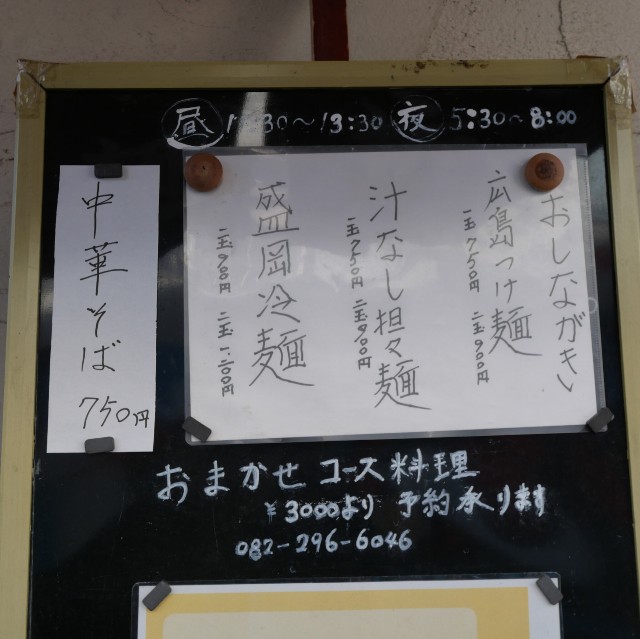 昼 11:30〜13:30 夜 5:30〜8:00
おしながき
広島つけ麺
一玉750円 二玉900円
汁なし担々麺
一玉750円 二玉900円
盛岡冷麺
一玉900円 二玉1,100円
中華そば 750円
おまかせコース料理
¥3000より 予約承ります
082-296-6046